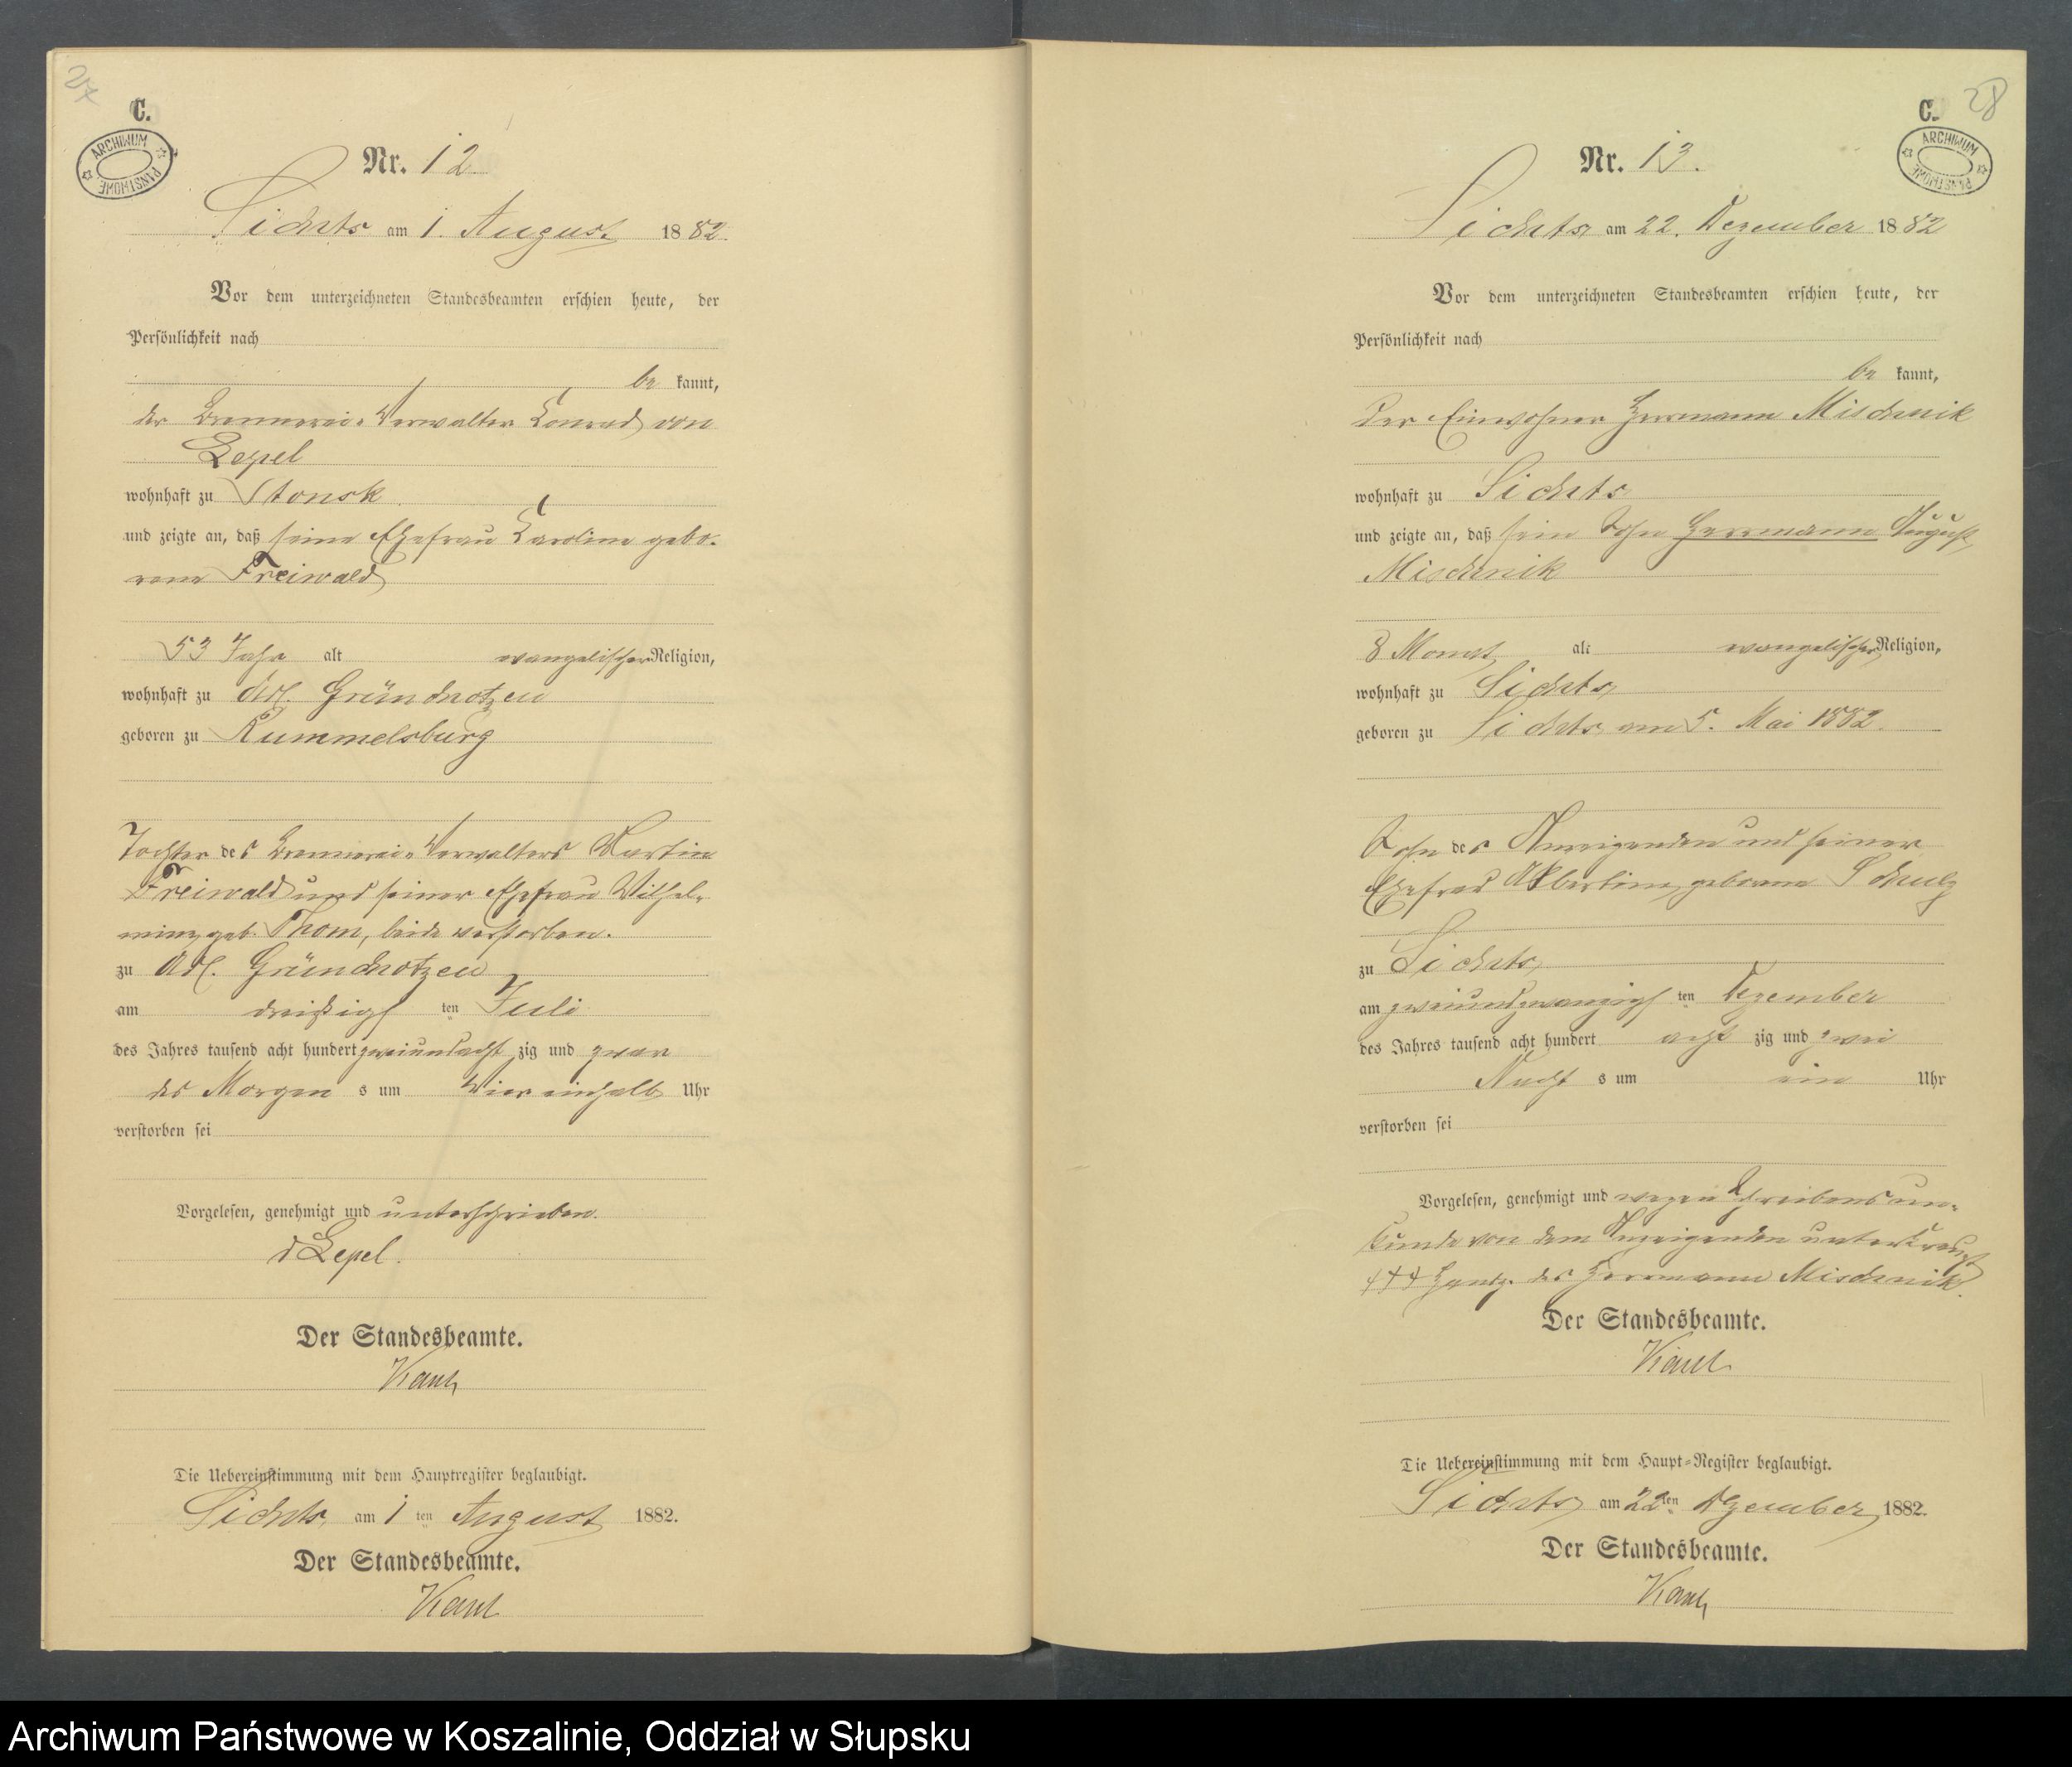 27
C.
ARCHIWUM PAŃSTWOWE
Nr. 12
Sichts am 1. August 1882.
Vor dem unterzeichneten Standesbeamten erschien heute, der
Persönlichkeit nach
be kannt,
der Brennerei-Verwalter Conrad von
Lepel
wohnhaft zu Stonsk
und zeigte an, daß seine Ehefrau Caroline gebo-
rene Freiwald
53 Jahr alt evangelischer Religion,
wohnhaft zu Adl. Gründhotzen
geboren zu Rummelsburg
Tochter des Brennerei-Verwalters Martin
Freiwald und seiner Ehefrau Wilhel-
mine, geb. Thom, beide verstorben.
zu Adl. Gründhotzen
am dreißigst ten Juli
des Jahres tausend acht hundert zweiundacht zig und zwar
des Morgen s um Vier einhalb Uhr
verstorben sei
Vorgelesen, genehmigt und unterschrieben.
v Lepel.
Der Standesbeamte.
Die Uebereinstimmung mit dem Hauptregister beglaubigt.
Sichts, am 1 ten August 1882.
Der Standesbeamte.
28
C.
ARCHIWUM PAŃSTWOWE
Nr. 13.
Sichts am 22. Dezember 1882
Vor dem unterzeichneten Standesbeamten erschien heute, der
Persönlichkeit nach
be kannt,
der Einwohner Herrmann Mischnik
wohnhaft zu Sichts
und zeigte an, daß sein Sohn Herrmann August
Mischnik
8 Monat alt evangelischer Religion,
wohnhaft zu Sichts
geboren zu Sichts am 5. Mai 1882.
Sohn des Anzeigenden und seiner
Ehefrau Albertine, geborene Schulz
zu Sichts,
am zweiundzwanzigst ten Dezember
des Jahres tausend acht hundert acht zig und zwei
Nacht s um ein Uhr
verstorben sei
Vorgelesen, genehmigt und wegen Schreibensun-
kunde von dem Anzeigenden unterkreuzt
+++ Handz. des Herrmann Mischnik.
Der Standesbeamte.
Die Uebereinstimmung mit dem Haupt-Register beglaubigt.
Sichts, am 22 ten Dezember 1882.
Der Standesbeamte.
Archiwum Państwowe w Koszalinie, Oddział w Słupsku